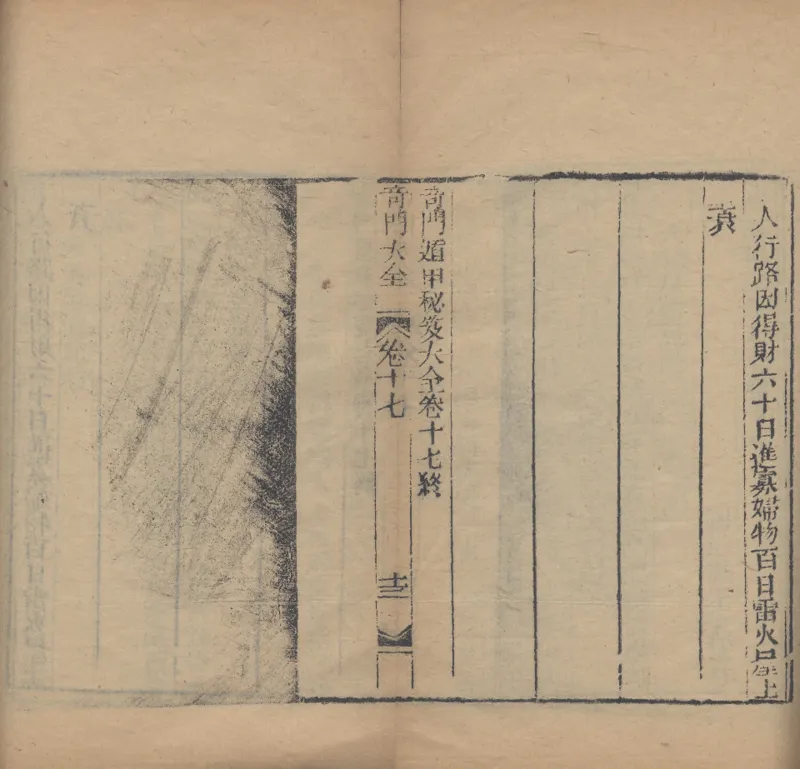 人行路因得財六十日進寡婦物百日雷火屋上
衰
奇門遁甲秘笈大全卷十七終
奇門大全
卷十七
十三